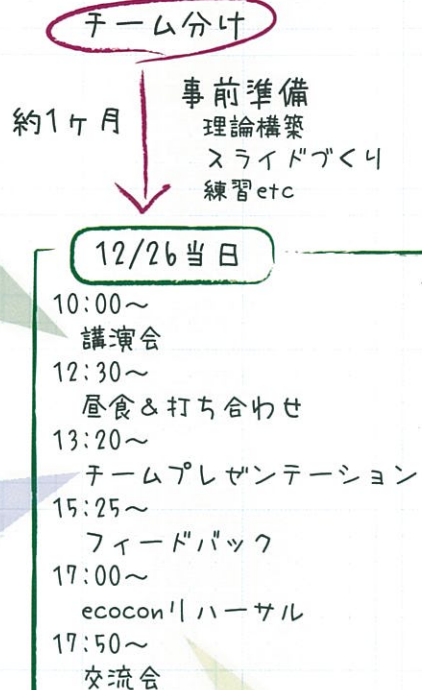 チーム分け
約1ヶ月
事前準備
理論構築
スライドづくり
練習etc
12/26当日
10:00〜
講演会
12:30〜
昼食&打ち合わせ
13:20〜
チームプレゼンテーション
15:25〜
フィードバック
17:00〜
ecoconリハーサル
17:50〜
交流会